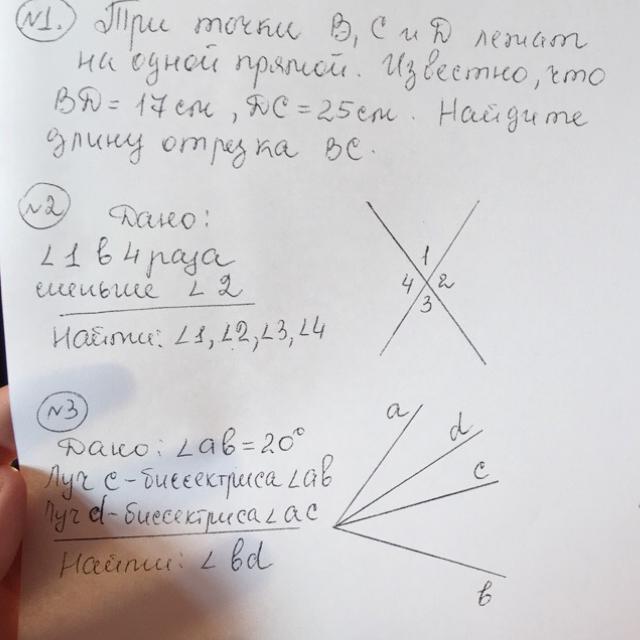 №1. Три точки B, C и D лежат
на одной прямой. Известно, что
BD = 17 см, DC = 25 см. Найдите
длину отрезка BC.
№2 Дано:
∠1 в 4 раза
меньше ∠2
Найти: ∠1, ∠2, ∠3, ∠4
1
4 2
3
№3
Дано: ∠ab = 20°
Луч c - биссектриса ∠ab
Луч d - биссектриса ∠ac
Найти: ∠bd
a
d
c
b